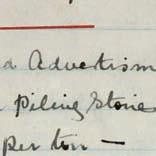 d Advertism
Piling Stones
per ton —